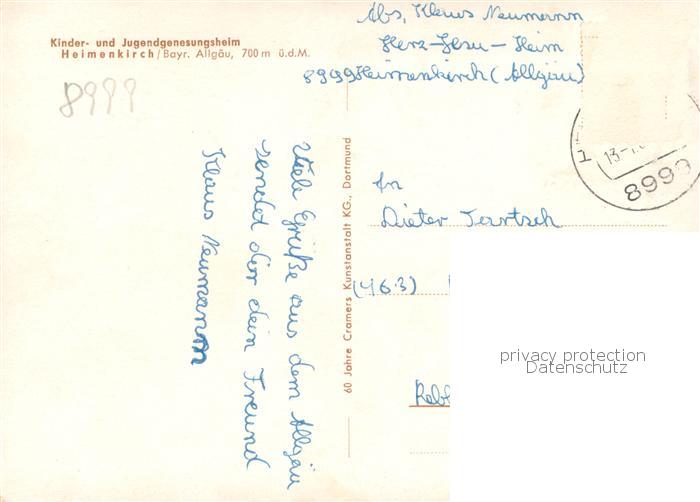 Kinder- und Jugendgenesungsheim
Heimenkirch/Bayr. Allgäu, 700 m ü.d.M.
8999
Viele Grüße aus dem Allgäu
sendet dir dein Freund
Klaus Neumann
60 Jahre Cramers Kunstanstalt KG., Dortmund
Abs, Klaus Neumann
Herz-Jesu-Heim
8999 Heimenkirch (Allgäu)
1
13-
8999
An
Dieter
(463)
privacy protection
Datenschutz